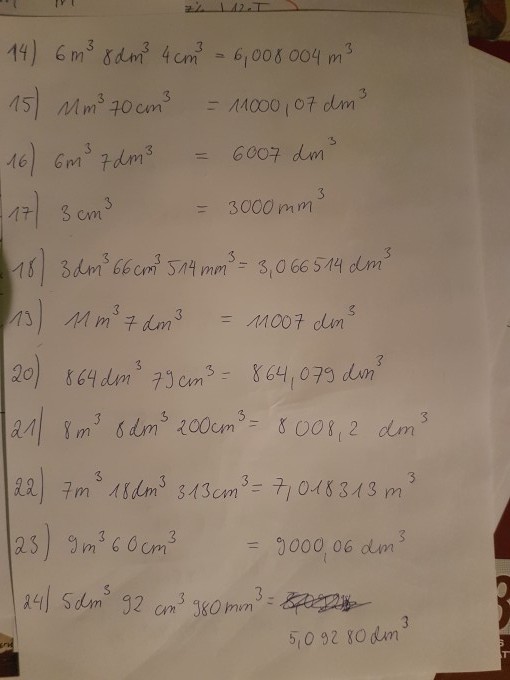 14) 6m³ 8dm³ 4cm³ = 6,008004 m³
15) 11m³ 70cm³ = 11000,07 dm³
16) 6m³ 7dm³ = 6007 dm³
17) 3cm³ = 3000mm³
18) 3dm³ 66cm³ 514mm³ = 3,066514 dm³
19) 11m³ 7dm³ = 11007 dm³
20) 864dm³ 79cm³ = 864,079 dm³
21) 8m³ 8dm³ 200cm³ = 8008,2 dm³
22) 7m³ 18dm³ 313cm³ = 7,018313 m³
23) 9m³ 60cm³ = 9000,06 dm³
24) 5dm³ 92 cm³ 980mm³ =
5,09280dm³